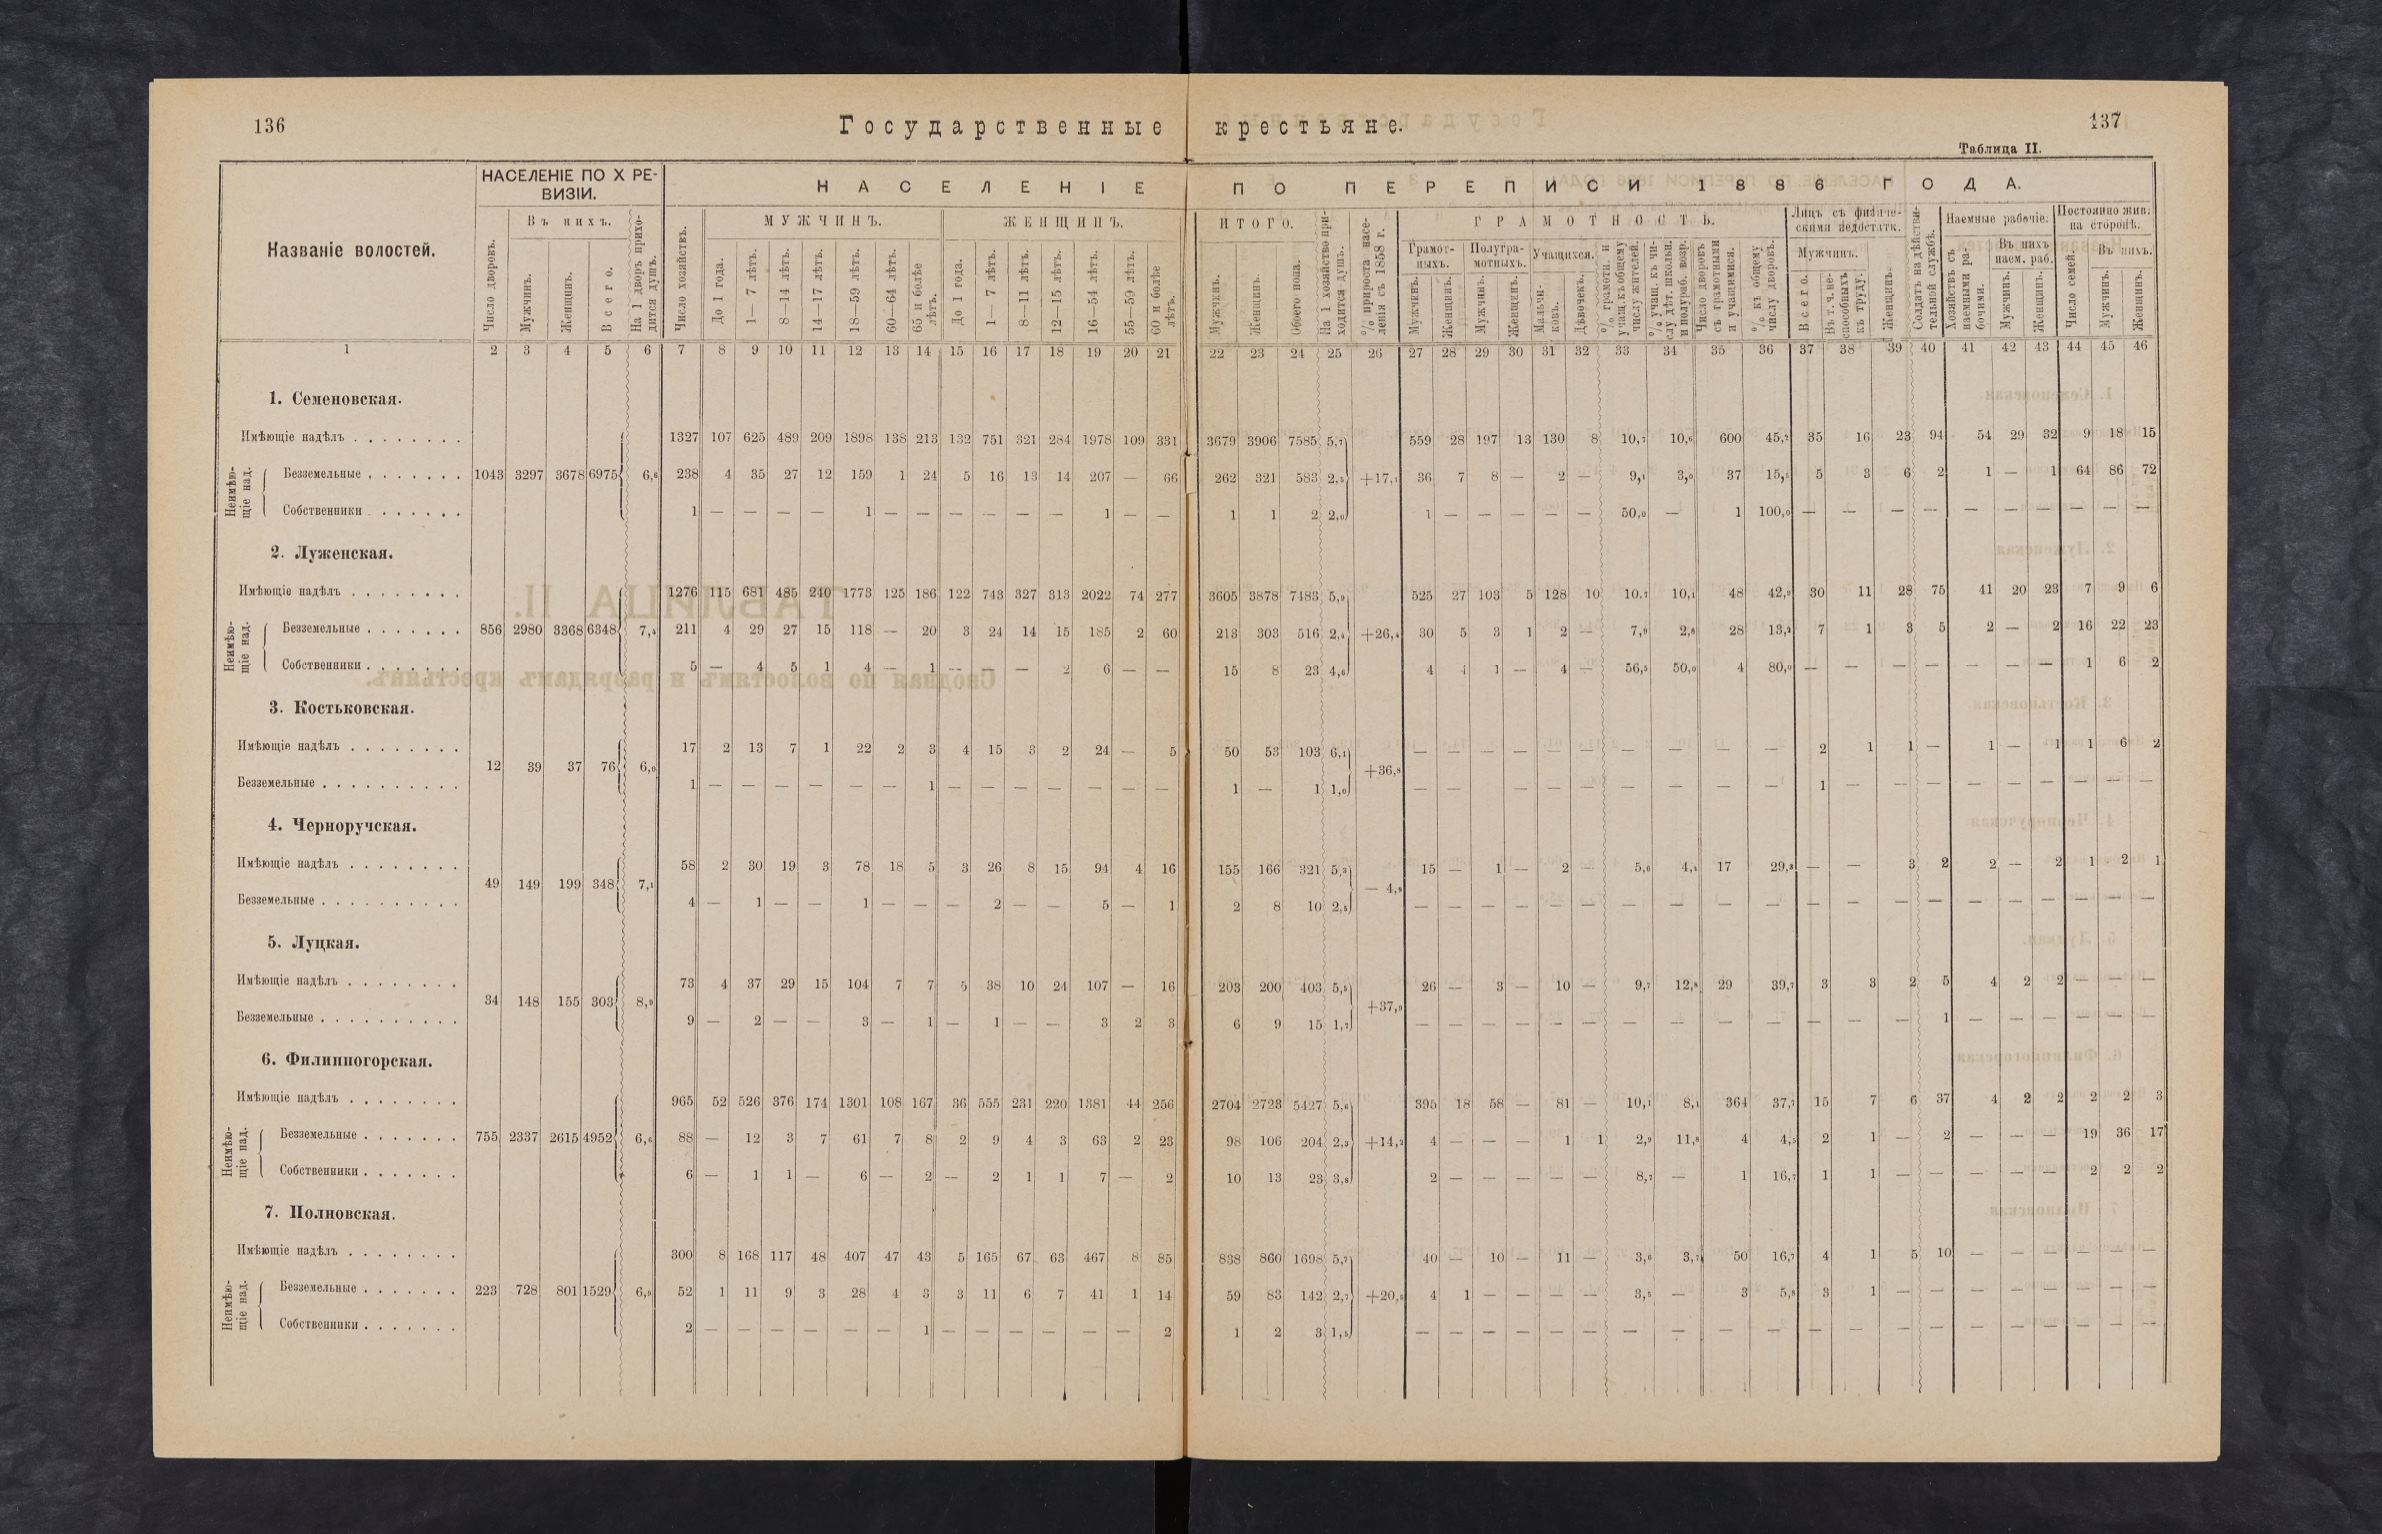 136
Государственные крестьяне.
137
Таблица II.
Названіе волостей.
НАСЕЛЕНІЕ ПО X РЕ-
ВИЗІИ.
НАСЕЛЕНІЕ ПО ПЕРЕПИСИ 1886 ГОДА.
Число дворовъ.
Въ нихъ.
Мужчинъ.
Женщинъ.
Всего.
На 1 дворъ прихо-
дится душъ.
Число хозяйствъ.
МУЖЧИНЪ.
До 1 года.
1—7 лѣтъ.
8—14 лѣтъ.
14—17 лѣтъ.
18—59 лѣтъ.
60—64 лѣтъ.
65 и болѣе
лѣтъ.
ЖЕНЩИНЪ.
До 1 года.
1—7 лѣтъ.
8—11 лѣтъ.
12—15 лѣтъ.
16—54 лѣтъ.
55—59 лѣтъ.
60 и болѣе
лѣтъ.
ИТОГО.
Мужчинъ.
Женщинъ.
Обоего пола.
На 1 хозяйство при-
ходится душъ.
% прироста насе-
ленія съ 1858 г.
ГРАМОТНОСТЬ.
Грамот-
ныхъ.
Мужчинъ.
Женщинъ.
Полугра-
мотныхъ.
Мужчинъ.
Женщинъ.
Учащихся.
Мальчи-
ковъ.
Дѣвочекъ.
% грамотн. и
учащ. къ общему
числу жителей.
% учащ. къ чи-
слу дѣт. школьн.
и полураб. возр.
Число дворовъ
съ грамотными
и учащимися.
% къ общему
числу дворовъ.
Лицъ съ физиче-
скими недостатк.
Мужчинъ.
Всего.
Въ т. ч. не-
способныхъ
къ труду.
Женщинъ.
Солдатъ на дѣйстви-
тельной службѣ.
Наемные рабочіе.
Хозяйствъ съ
наемными ра-
бочими.
Въ нихъ
наем. раб.
Мужчинъ.
Женщинъ.
Постоянно жив.
на сторонѣ.
Число семей.
Въ нихъ.
Мужчинъ.
Женщинъ.
1 2 3 4 5 6 7 8 9 10 11 12 13 14 15 16 17 18 19 20 21 22 23 24 25 26 27 28 29 30 31 32 33 34 35 36 37 38 39 40 41 42 43 44 45 46
1. Семеновская.
Имѣющіе надѣлъ . . . . . . . . 1327 107 625 489 209 1898 138 213 132 751 321 284 1978 109 331 3679 3906 7585 5,7 559 28 197 13 130 8 10,7 10,6 600 45,2 35 16 23 94 54 29 32 9 18 15
Неимѣю-
щіе над.
Безземельные . . . . . . . 1043 3297 3678 6975 6,6 238 4 35 27 12 159 1 24 5 16 13 14 207 — 66 262 321 583 2,5 +17,1 36 7 8 — 2 — 9,1 3,0 37 15,5 5 3 6 2 1 — 1 64 86 72
Собственники . . . . . . 1 — — — — 1 — — — — — — 1 — — 1 1 2 2,0 1 — — — — — 50,0 — 1 100,0 — — — — — — — — — —
2. Луженская.
Имѣющіе надѣлъ . . . . . . . . 1276 115 681 485 240 1773 125 186 122 743 327 313 2022 74 277 3605 3878 7483 5,9 525 27 103 5 128 10 10,7 10,1 48 42,9 30 11 28 75 41 20 23 7 9 6
Неимѣю-
щіе над.
Безземельные . . . . . . . 856 2980 3368 6348 7,4 211 4 29 27 15 118 — 20 3 24 14 15 185 2 60 213 303 516 2,4 +26,4 30 5 3 1 2 — 7,9 2,8 28 13,3 7 1 3 5 2 — 2 16 22 23
Собственники . . . . . . . 5 — 4 5 1 4 — 1 — — — 2 6 — — 15 8 23 4,6 4 4 1 — 4 — 56,5 50,0 4 80,0 — — — — — — — 1 6 2
3. Костьковская.
Имѣющіе надѣлъ . . . . . . . . 17 2 13 7 1 22 2 3 4 15 3 2 24 — 5 50 53 103 6,1 — — — — — — — — — — 2 1 1 — 1 — 1 1 6 2
12 39 37 76 6,0 +36,8
Безземельные . . . . . . . . . . 1 — — — — — — 1 — — — — — — — 1 — 1 1,0 — — — — — — — — — 1 — — — — — — — — —
4. Черноручская.
Имѣющіе надѣлъ . . . . . . . . 58 2 30 19 3 78 18 5 3 26 8 15 94 4 16 155 166 321 5,3 15 — 1 — 2 — 5,6 4,4 17 29,3 — — 3 2 2 — 2 1 2 1
49 149 199 348 7,1 — 4,9
Безземельные . . . . . . . . . . 4 — 1 — — 1 — — — 2 — — 5 — 1 2 8 10 2,5 — — — — — — — — — — — — — — — — — — — —
5. Луцкая.
Имѣющіе надѣлъ . . . . . . . . 73 4 37 29 15 104 7 7 5 38 10 24 107 — 16 203 200 403 5,5 26 — 3 — 10 — 9,7 12,8 29 39,7 3 3 2 5 4 2 2 — — —
34 148 155 303 8,9 +37,9
Безземельные . . . . . . . . . . 9 — 2 — — 3 — 1 — 1 — — 3 2 3 6 9 15 1,7 — — — — — — — — — — — — — 1 — — — — — —
6. Филиппогорская.
Имѣющіе надѣлъ . . . . . . . . 965 52 526 376 174 1301 108 167 36 555 231 220 1381 44 256 2704 2723 5427 5,6 395 18 58 — 81 — 10,1 8,1 364 37,7 15 7 6 37 4 2 2 2 2 3
Неимѣю-
щіе над.
Безземельные . . . . . . . 755 2337 2615 4952 6,6 88 — 12 3 7 61 7 8 2 9 4 3 63 2 23 98 106 204 2,3 +14,2 4 — — — 1 1 2,9 11,8 4 4,5 2 1 — 2 — — — 19 36 17
Собственники . . . . . . . 6 — 1 1 — 6 — 2 — 2 1 1 7 — 2 10 13 23 3,8 2 — — — — — 8,7 — 1 16,7 1 1 — — — — — 2 2 2
7. Полновская.
Имѣющіе надѣлъ . . . . . . . . 300 8 168 117 48 407 47 43 5 165 67 63 467 8 85 838 860 1698 5,7 40 — 10 — 11 — 3,6 3,7 50 16,7 4 1 5 10 — — — — — —
Неимѣю-
щіе над.
Безземельные . . . . . . . 223 728 801 1529 6,9 52 1 11 9 3 28 4 3 3 11 6 7 41 1 14 59 83 142 2,7 +20,5 4 1 — — — — 3,5 — 3 5,8 3 1 — — — — — — — —
Собственники . . . . . . . 2 — — — — — — 1 — — — — — — 2 1 2 3 1,5 — — — — — — — — — — — — — — — — — — — —